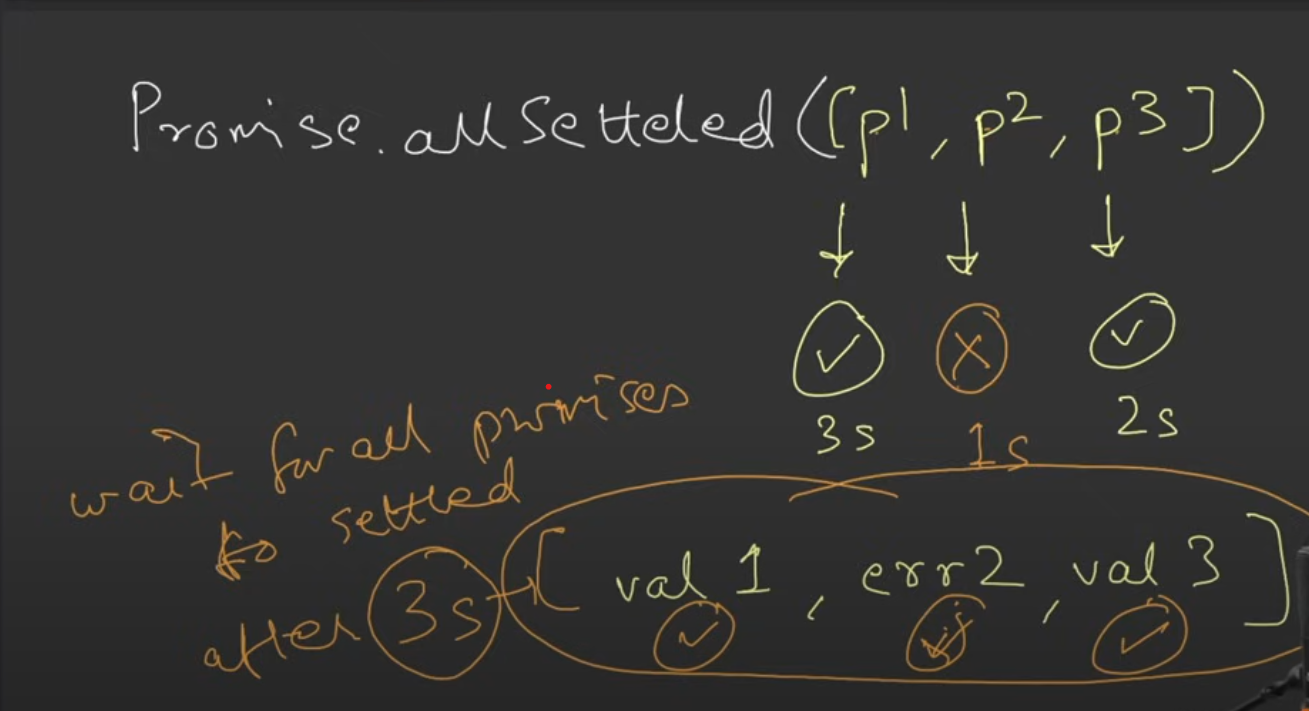 Promise.allSetteled([p1, p2, p3])
3s
1s
2s
wait for all promises
to settled
after 3s
[val 1, err2, val 3]